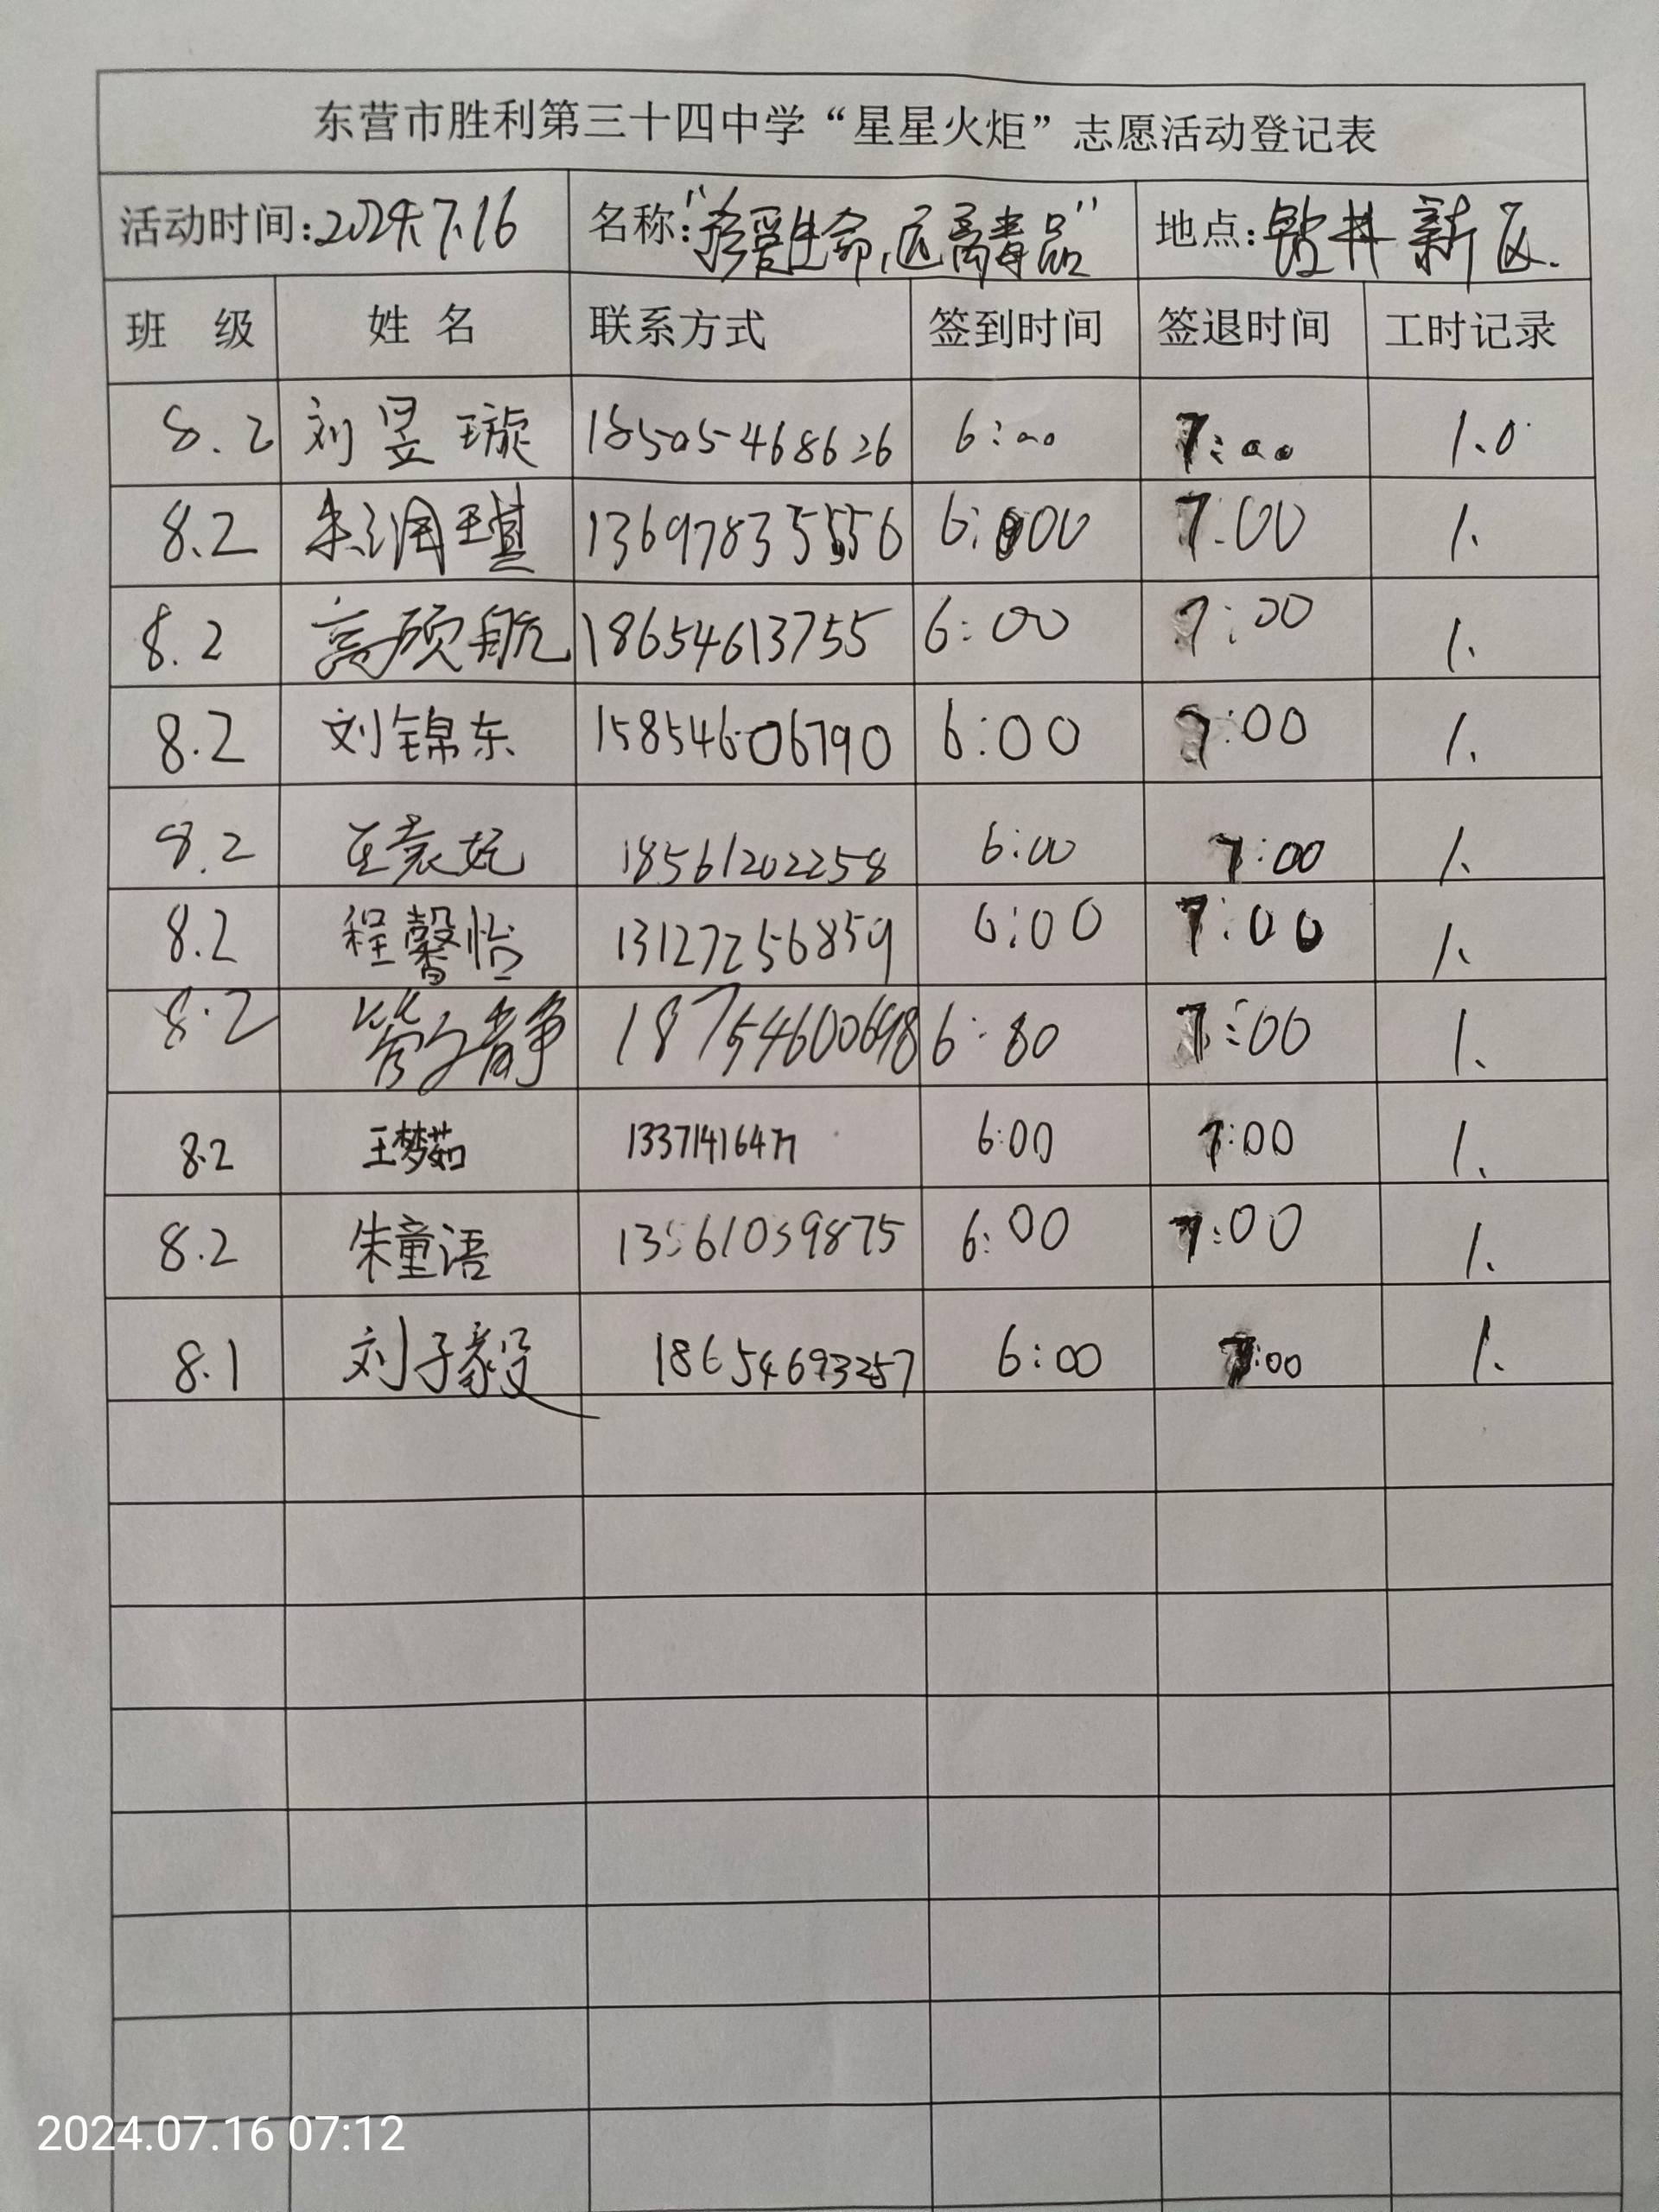 东营市胜利第三十四中学“星星火炬”志愿活动登记表
活动时间:2024.7.16 名称:“珍爱生命,远离毒品” 地点:钻井新区.
班 级 姓 名 联系方式 签到时间 签退时间 工时记录
8.2 刘昱璇 18505468626 6:00 7:00 1.0
8.2 朱润琪 13697835556 6:00 7:00 1.
8.2 高硕航 18654613755 6:00 7:00 1.
8.2 刘锦东 15854606790 6:00 7:00 1.
8.2 18561202258 6:00 7:00 1.
8.2 程馨怡 13127256859 6:00 7:00 1.
8.2 管文静 18754600698 6:00 7:00 1.
8.2 王梦茹 13371416477 6:00 7:00 1.
8.2 朱童语 13561059875 6:00 7:00 1.
8.1 刘子毅 18654693257 6:00 7:00 1.
2024.07.16 07:12